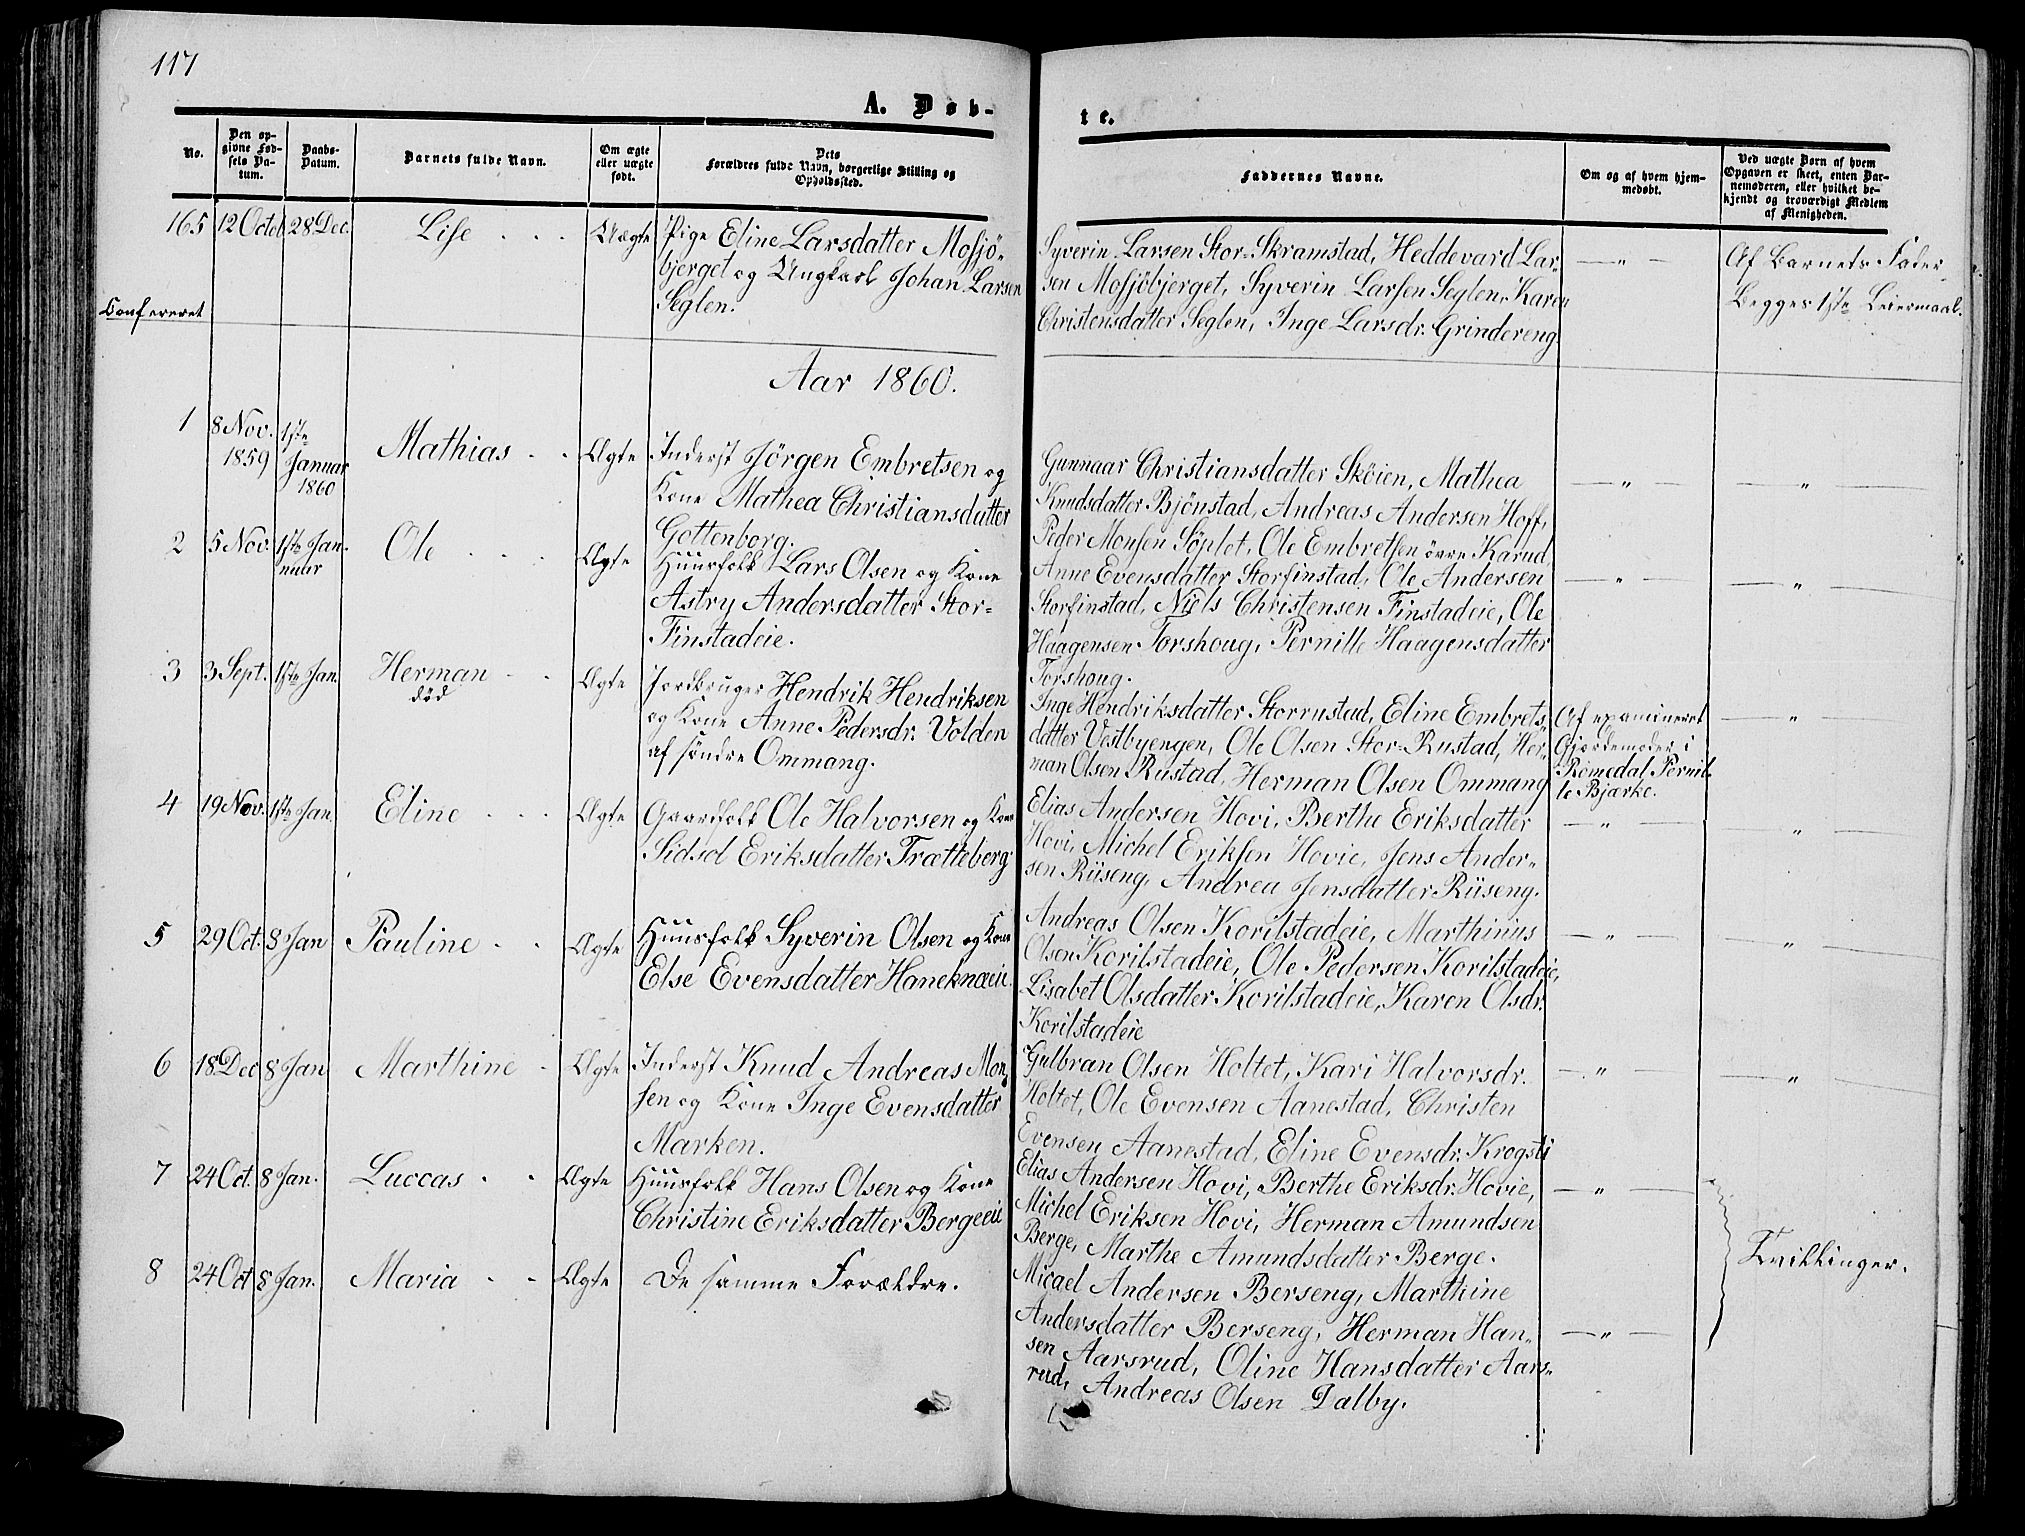 117
A. Døb-
te.
No.
Den op-
givne Fød-
sels Da-
tum.
Daabs-
Datum.
Barnets fulde Navn.
Om ægte
eller uægte
født.
Dets
Forældres fulde Navn, borgerlige Stilling og
Opholdssted.
Faddernes Navne.
Om og af hvem hjem-
medøbt.
Ved uægte Børn af hvem
Opgaven er skeet, enten Bar-
nemoderen, eller hvilket be-
kjendt og troværdigt Medlem
af Menigheden.
165 12 Octob. 28 Dec. Lise Uægte Pige Eline Larsdatter Mosjö-
bjerget og Ungkarl Johan Larsen
Seglen.
Confereret
Syverin Larsen Stor-Skramstad, Heddevard Lar-
sen Mosjöbjerget, Syverin Larsen Seglen, Karen
Christensdatter Seglen, Inge Larsdr. Grindereng
— „ —
Af Barnets Fader
Begges 1ste Leiermaal.
Aar 1860.
1 8 Nov. 1ste Mathias Ægte Inderst Jörgen Embretsen og
1859 Januar Kone Mathea Christiansdatter
1860
Gottenborg.
Gunnaar Christiansdatter Sköien, Mathea
Knudsdatter Bjönstad, Andreas Andersen Hoff,
Peder Monsen Söplet, Ole Embretsen övre Karud
— „ — — „ —
2 5 Nov. 1ste Jan- Ole Ægte Huusfolk Lars Olsen og Kone
nuar Astry Andersdatter Stor-
Finstadeie.
Anne Evensdatter Storfinstad, Ole Andersen
Storfinstad, Niels Christensen Finstadeie, Ole
Haagensen Torshoug, Pernille Haagensdatter
Torshoug.
— „ — — „ —
3 3 Sept. 1ste Jan. Herman Ægte Jordbruger Hendrik Hendriksen
död og Kone Anne Pedersdr. Volden
af söndre Ommang.
Inge Hendriksdatter Storrustad, Eline Embrets-
datter Vestbyengen, Ole Olsen Stor-Rustad, Her-
man Olsen Rustad, Herman Olsen Ommang
Af examineret
Gjordemoder i
Romedal Pernil-
le Bjærke.
— „ —
4 19 Nov. 1ste Jan. Eline Ægte Gaardfolk Ole Halvorsen og Kone
Sidsel Eriksdatter Trætteberg
Elias Andersen Hovi, Berthe Eriksdatter
Hovi, Michel Eriksen Hovie, Jens Ander-
sen Riiseng, Andrea Jensdatter Riiseng.
— „ — — „ —
5 29 Oct. 8 Jan Pauline Ægte Huusfolk Syverin Olsen og Kone
Else Evensdatter Haneknæeie.
Andreas Olsen Korilstadeie, Marthinius
Olsen Korilstadeie, Ole Pedersen Korilstadeie,
Lisabet Olsdatter Korilstadeie, Karen Olsdr.
Korilstadeie
— „ — — „ —
6 18 Dec 8 Jan Marthine Ægte Inderst Knud Andreas Mon-
sen og Kone Inge Evensdatter
Marken.
Gulbran Olsen Holtet, Kari Halvorsdr.
Holtet, Ole Evensen Aanestad, Christen
Evensen Aanestad, Eline Evensdr. Krogsti
— „ — — „ —
7 24 Oct. 8 Jan. Luccas Ægte Huusfolk Hans Olsen og Kone
Christine Eriksdatter Bergeeie
Elias Andersen Hovi, Berthe Eriksdr. Hovie,
Michel Eriksen Hovi, Herman Amundsen
Berge, Marthe Amundsdatter Berge.
— „ —
Tvillinger.
8 24 Oct 8 Jan. Maria Ægte De samme Forældre.
Micael Andersen Berseng, Marthine
Andersdatter Berseng, Herman Han-
sen Aarsrud, Oline Hansdatter Aars-
rud, Andreas Olsen Dalby.
— „ —